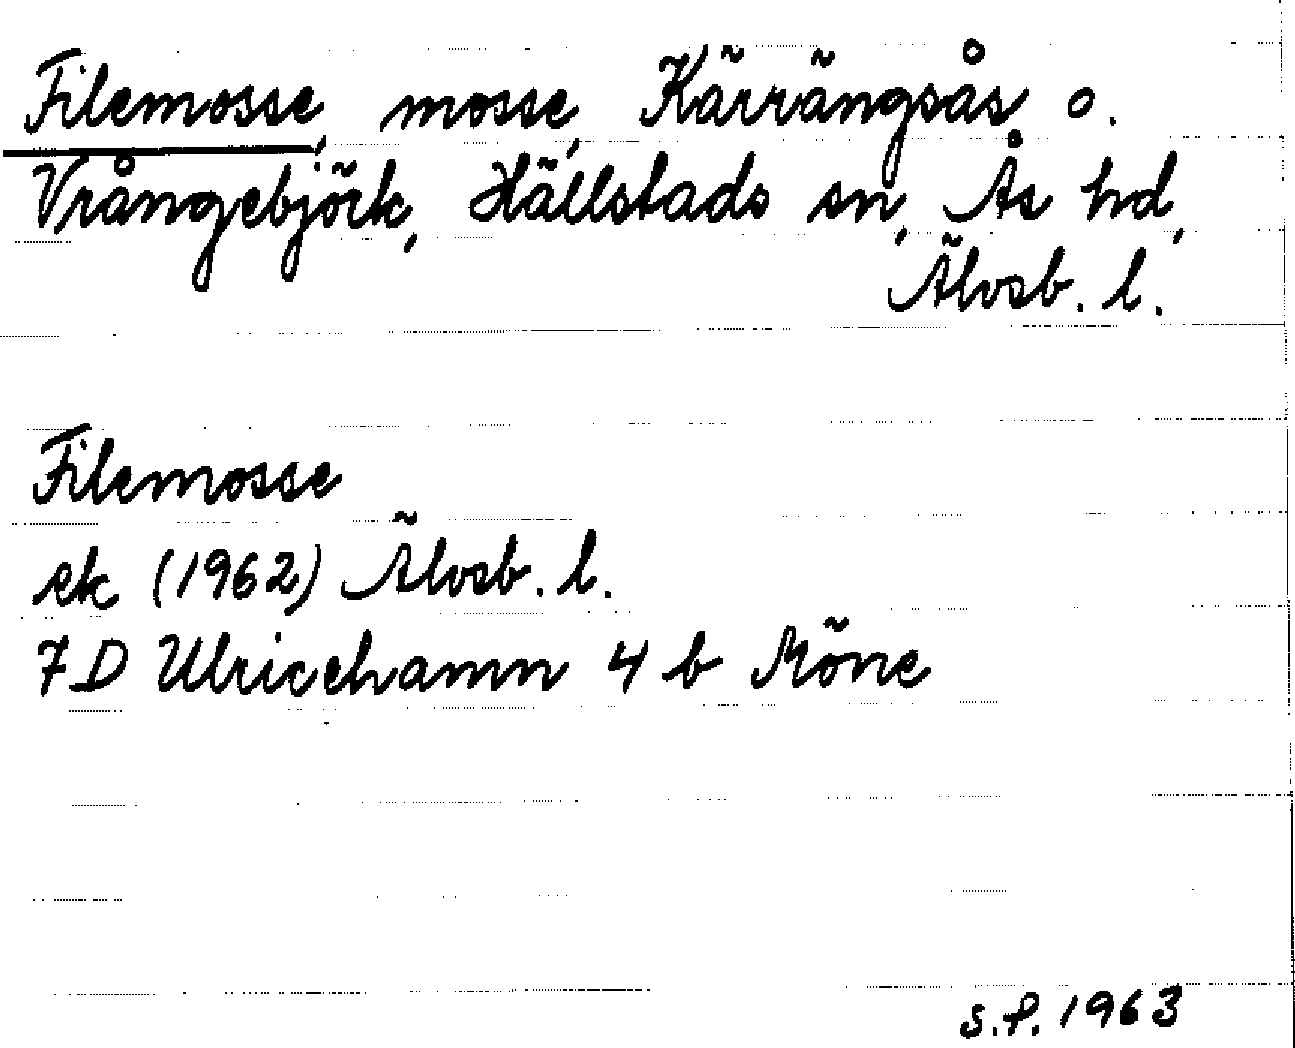 Filemosse, mosse, Kärrängsås o.
Vrångebjörk, Hällstads sn, Ås hd,
Älvsb. l.
Filemosse
ek (1962) Älvsb. l.
7D Ulricehamn 4 b Möne
S.P. 1963